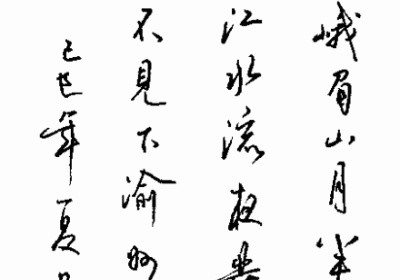 峨眉山月半
江水流夜發
不見下渝州
己巳年夏